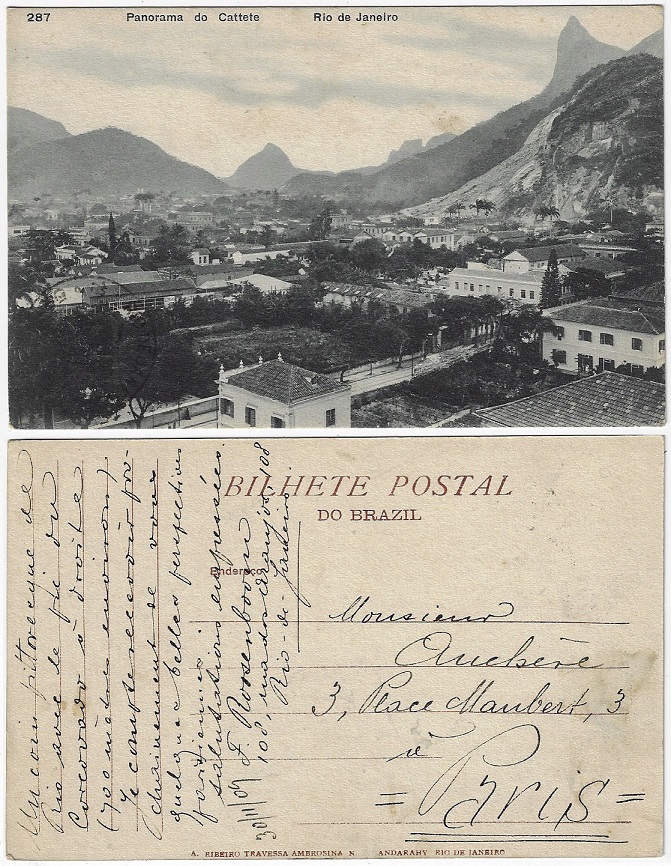 287 Panorama do Cattete Rio de Janeiro
BILHETE POSTAL
DO BRAZIL
Endereço
Monsieur
Auchère
3, Place Maubert, 3
à
= Paris =
Un coin pittoresque de
Rio avec le pic du
Corcovado à droite
(700 mètres environ)
Je compte recevoir pro-
chainement de vous
quelques belles perspectives
parisiennes.
salutations empressées.
F. Roosenboom
108, rua dos Araujos, 108
Rio-de-Janeiro.
30/11/09
A. RIBEIRO TRAVESSA AMBROSINA N ANDARAHY RIO DE JANEIRO